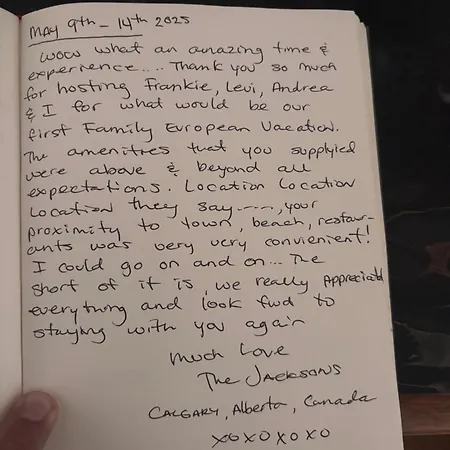 MAY 9th - 14th 2025
WOW what an amazing time &
experience.... Thank you so much
for hosting Frankie, Levi, Andrea
& I for what would be our
first Family European Vacation.
The amenities that you supplyied
were above & beyond all
expectations. Location Location
Location they say ----, your
proximity to town, beach, restaur-
ants was very very convienient!
I could go on and on... The
short of it is, we really Appreciatd
everything and look fwd to
staying with you again
Much Love
The JACKSONS
CALGARY, Alberta, Canada
XOXOXOXO